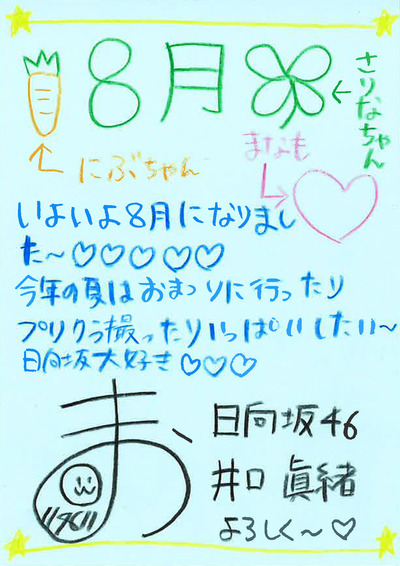 8月
←さりなちゃん
にぶちゃん
まなも
いよいよ8月になりまし
た〜♡♡♡♡♡
今年の夏はおまつりに行ったり
プリクラ撮ったりいっぱいしたい〜
日向坂大好き♡♡♡
ま、
日向坂46
井口 眞緒
よろしく〜♡